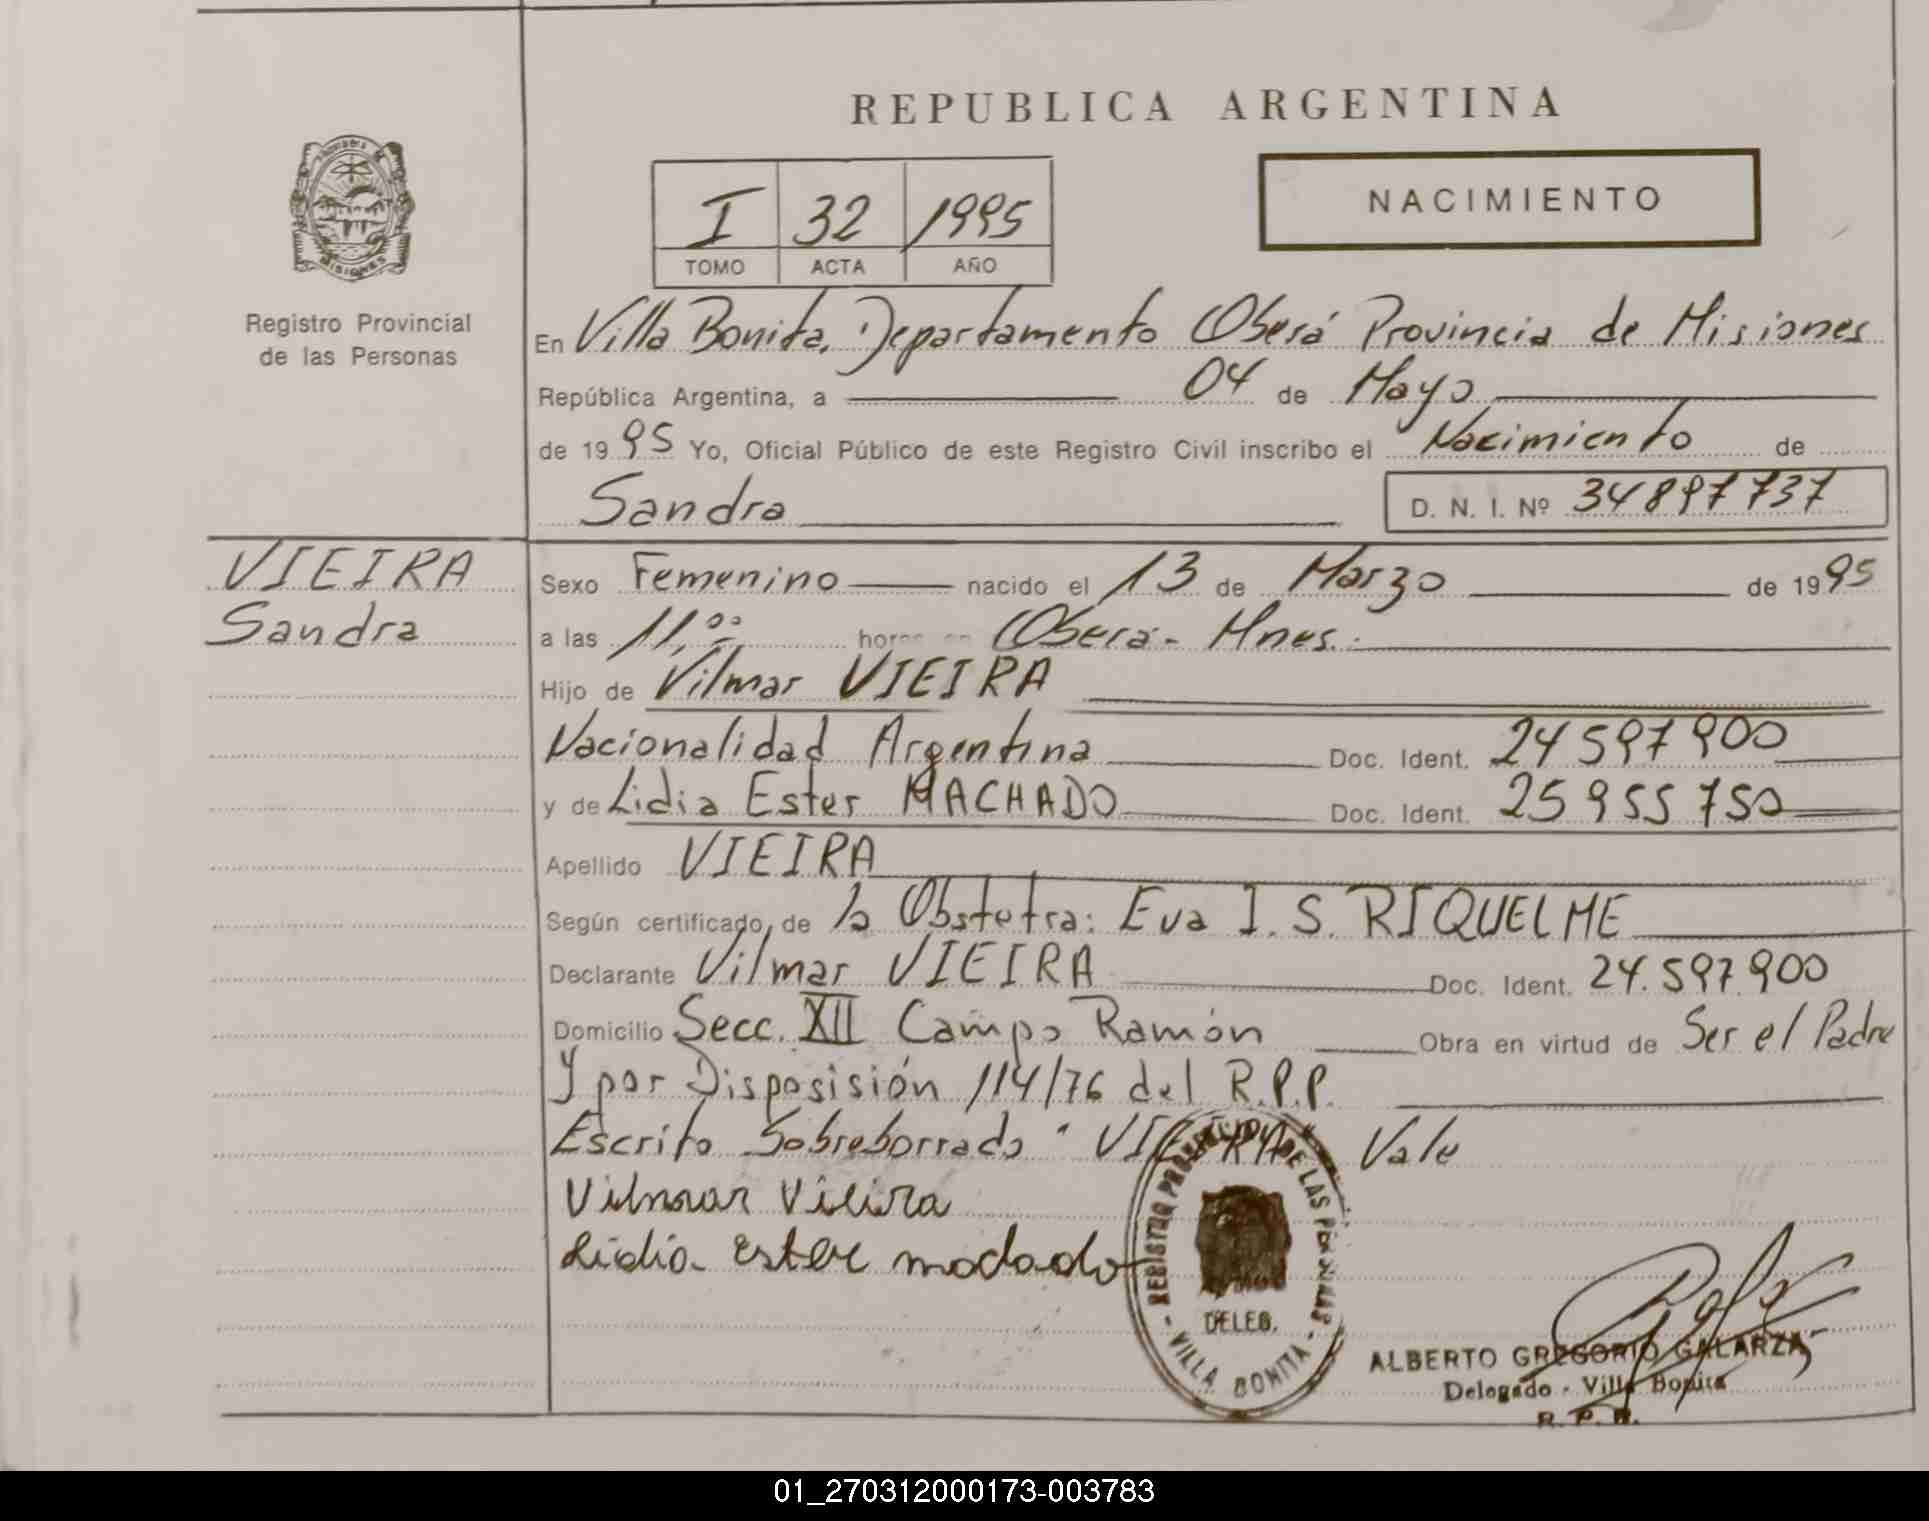 REPUBLICA ARGENTINA
NACIMIENTO
I 32 1995
TOMO ACTA AÑO
MISIONES
Registro Provincial
de las Personas
En Villa Bonita, Departamento Oberá Provincia de Misiones
República Argentina, a 04 de Mayo
de 1995 Yo, Oficial Público de este Registro Civil inscribo el Nacimiento de
Sandra D. N. I. Nº 34897737
VIEIRA
Sandra
Sexo Femenino nacido el 13 de Marzo de 1995
a las 11,00 horas en Oberá - Mnes.
Hijo de Vilmar VIEIRA
Nacionalidad Argentina Doc. Ident. 24597900
y de Lidia Ester MACHADO Doc. Ident. 25955750
Apellido VIEIRA
Según certificado, de la Obstetra: Eva I. S. RIQUELME
Declarante Vilmar VIEIRA Doc. Ident. 24.597.900
Domicilio Secc. XII Campo Ramón Obra en virtud de Ser el Padre
y por Disposisión 114/76 del R.P.P.
Escrito Sobreborrado "VIEIRA" Vale
Vilmar Vieira
Lidia Ester modado
REGISTRO PROVINCIAL DE LAS PERSONAS
DELEG.
- VILLA BONITA -
ALBERTO GREGORIO GALARZA
Delegado - Villa Bonita
R. P. P.
01_270312000173-003783